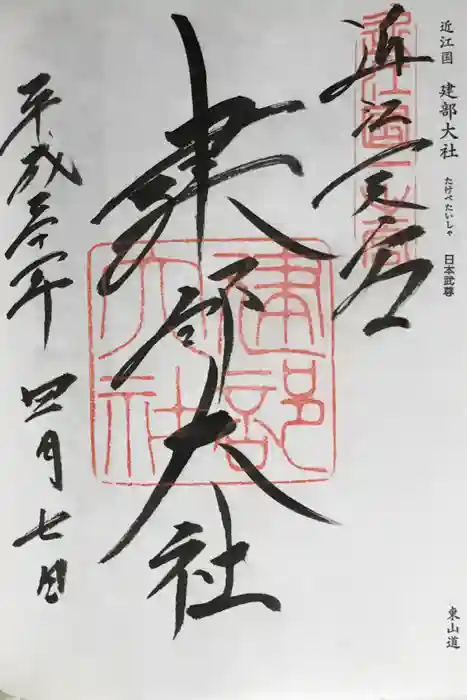 近江国 建部大社 たけべたいしゃ 日本武尊
東山道
近江一之宮
近江国一之宮
建部大社
建部
大社
平成三十年 四月七日